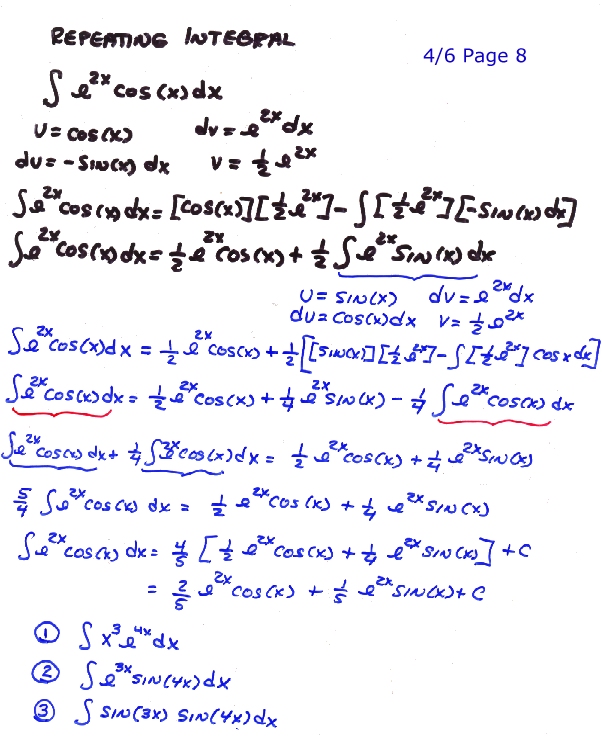 REPEATING INTEGRAL
4/6 Page 8
∫ e^{2x} cos(x) dx
u = cos(x)   dv = e^{2x} dx
du = -sin(x) dx   v = 1/2 e^{2x}
∫ e^{2x} cos(x) dx = [cos(x)][1/2 e^{2x}] - ∫ [1/2 e^{2x}][-sin(x) dx]
∫ e^{2x} cos(x) dx = 1/2 e^{2x} cos(x) + 1/2 ∫ e^{2x} sin(x) dx
u = sin(x)   dv = e^{2x} dx
du = cos(x) dx   v = 1/2 e^{2x}
∫ e^{2x} cos(x) dx = 1/2 e^{2x} cos(x) + 1/2 [[sin(x)][1/2 e^{2x}] - ∫ [1/2 e^{2x}] cos x dx]
∫ e^{2x} cos(x) dx = 1/2 e^{2x} cos(x) + 1/4 e^{2x} sin(x) - 1/4 ∫ e^{2x} cos(x) dx
∫ e^{2x} cos(x) dx + 1/4 ∫ e^{2x} cos(x) dx = 1/2 e^{2x} cos(x) + 1/4 e^{2x} sin(x)
5/4 ∫ e^{2x} cos(x) dx = 1/2 e^{2x} cos(x) + 1/4 e^{2x} sin(x)
∫ e^{2x} cos(x) dx = 4/5 [1/2 e^{2x} cos(x) + 1/4 e^{2x} sin(x)] + C
= 2/5 e^{2x} cos(x) + 1/5 e^{2x} sin(x) + C
① ∫ x^3 e^{4x} dx
② ∫ e^{3x} sin(4x) dx
③ ∫ sin(3x) sin(4x) dx